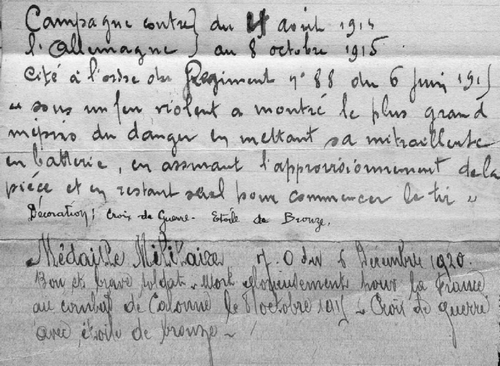 Campagne contre } du 4 août 1914
l'Allemagne } au 8 octobre 1915
Cité à l'ordre du Régiment n° 88 du 6 juin 1915
" sous un feu violent a montré le plus grand
mépris du danger en mettant sa mitrailleuse
en batterie, en assurant l'approvisionnement de la
pièce et en restant seul pour commencer le tir "
Décoration : Croix de Guerre. Etoile de Bronze.
Médaille Militaire J.O du 6 Décembre 1920.
Bon et brave soldat. Mort glorieusement pour la France
au combat de Calonne le 8 octobre 1915. Croix de guerre
avec étoile de bronze.